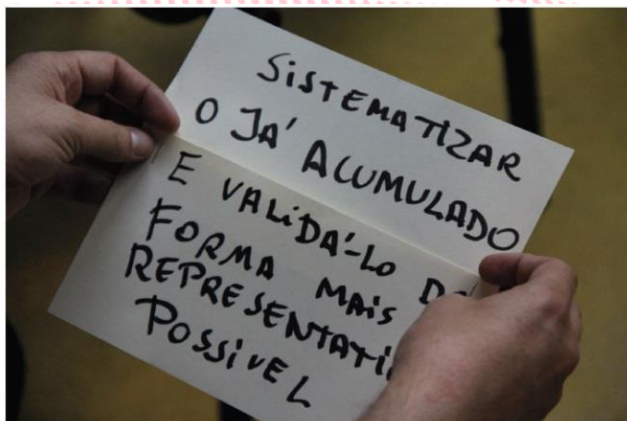 SISTEMATIZAR
O JÁ ACUMULADO
E VALIDÁ-LO DA
FORMA MAIS
REPRESENTATI
POSSIVEL